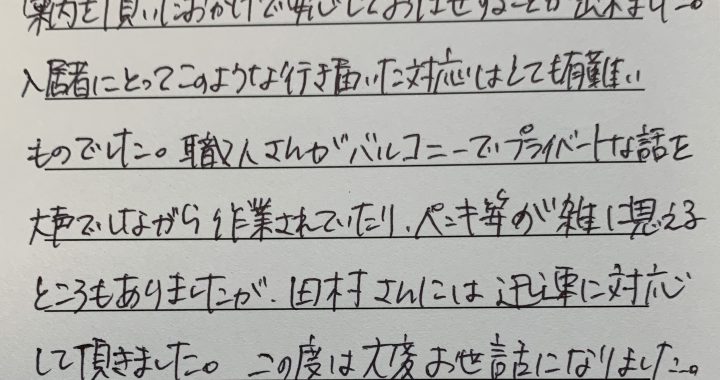 案内を頂いたおかげで安心しておまかせすることが出来ました。
入居者にとってこのような行き届いた対応はとても有難い
ものでした。職人さんがバルコニーでプライベートな話を
大声でしながら作業されていたり、ペンキ等が雑に見える
ところもありましたが、田村さんには迅速に対応
して頂きました。この度は大変お世話になりました。